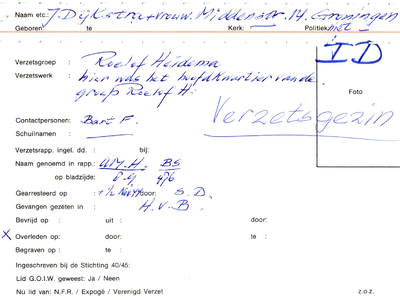 Naam etc.: J. Dijkstra + vrouw. Middenstr. 14. Groningen
Geboren: te Kerk: Politiek: niet
ID
Verzetsgroep : Roelof Heidema
Verzetswerk : hier was het hoofdkwartier van de
groep Roelof H.
Foto
Verzetsgezin
Contactpersonen: Bart F.
Schuilnamen :
Verzetsrapp, ingel. dd. : bij:
Naam genoemd in rapp.: BS
op bladzijde: 476
Gearresteerd op : door: S.D.
Gevangen gezeten in : H.v.B.
Bevrijd op : uit : door:
X Overleden op: door: te :
Begraven op : te :
Ingeschreven bij de Stichting 40/45:
Lid G.O.I.W. geweest: Ja / Neen
Nu lid van: N.F.R. / Expogé / Verenigd Verzet z.o.z.